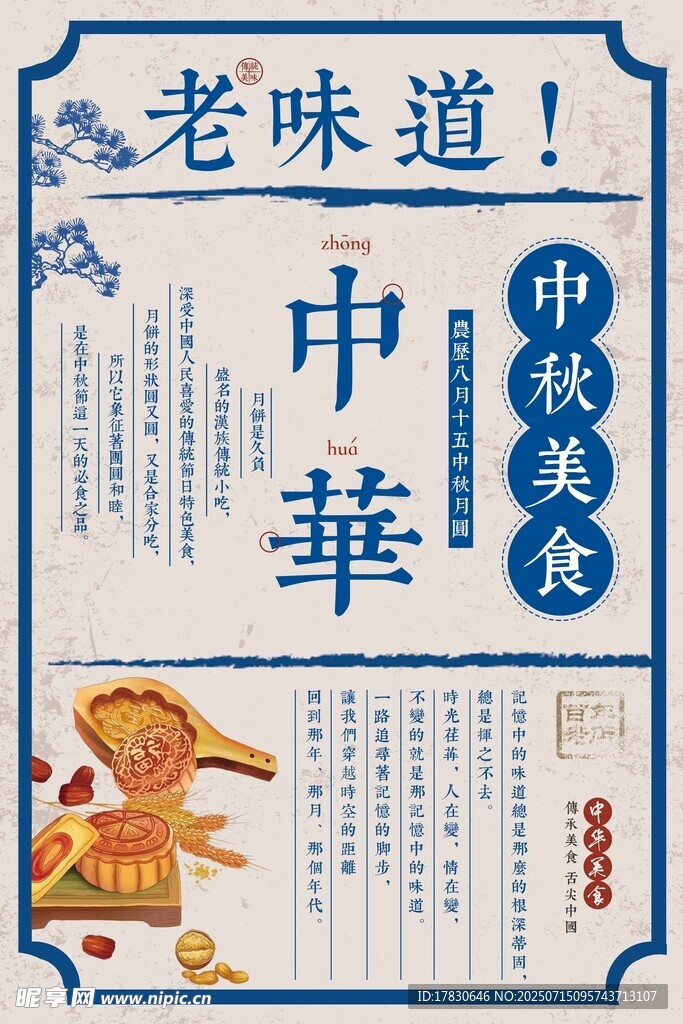 老味道！
傳統
美味
zhōng
中
huá
華
中秋美食
農歷八月十五中秋月圓
月餅是久負
盛名的漢族傳統小吃，
深受中國人民喜愛的傳統節日特色美食，
月餅的形狀圓又圓，又是合家分吃，
所以它象征著團圓和睦，
是在中秋節這一天的必食之品。
記憶中的味道總是那麼的根深蒂固，
總是揮之不去。
時光荏苒，人在變，情在變，
不變的就是那記憶中的味道。
一路追尋著記憶的脚步，
讓我們穿越時空的距離
回到那年、那月、那個年代。
百年
老店
中华美食
傳承美食 舌尖中國
昵享网 www.nipic.cn
ID:17830646 NO:20250715095743713107